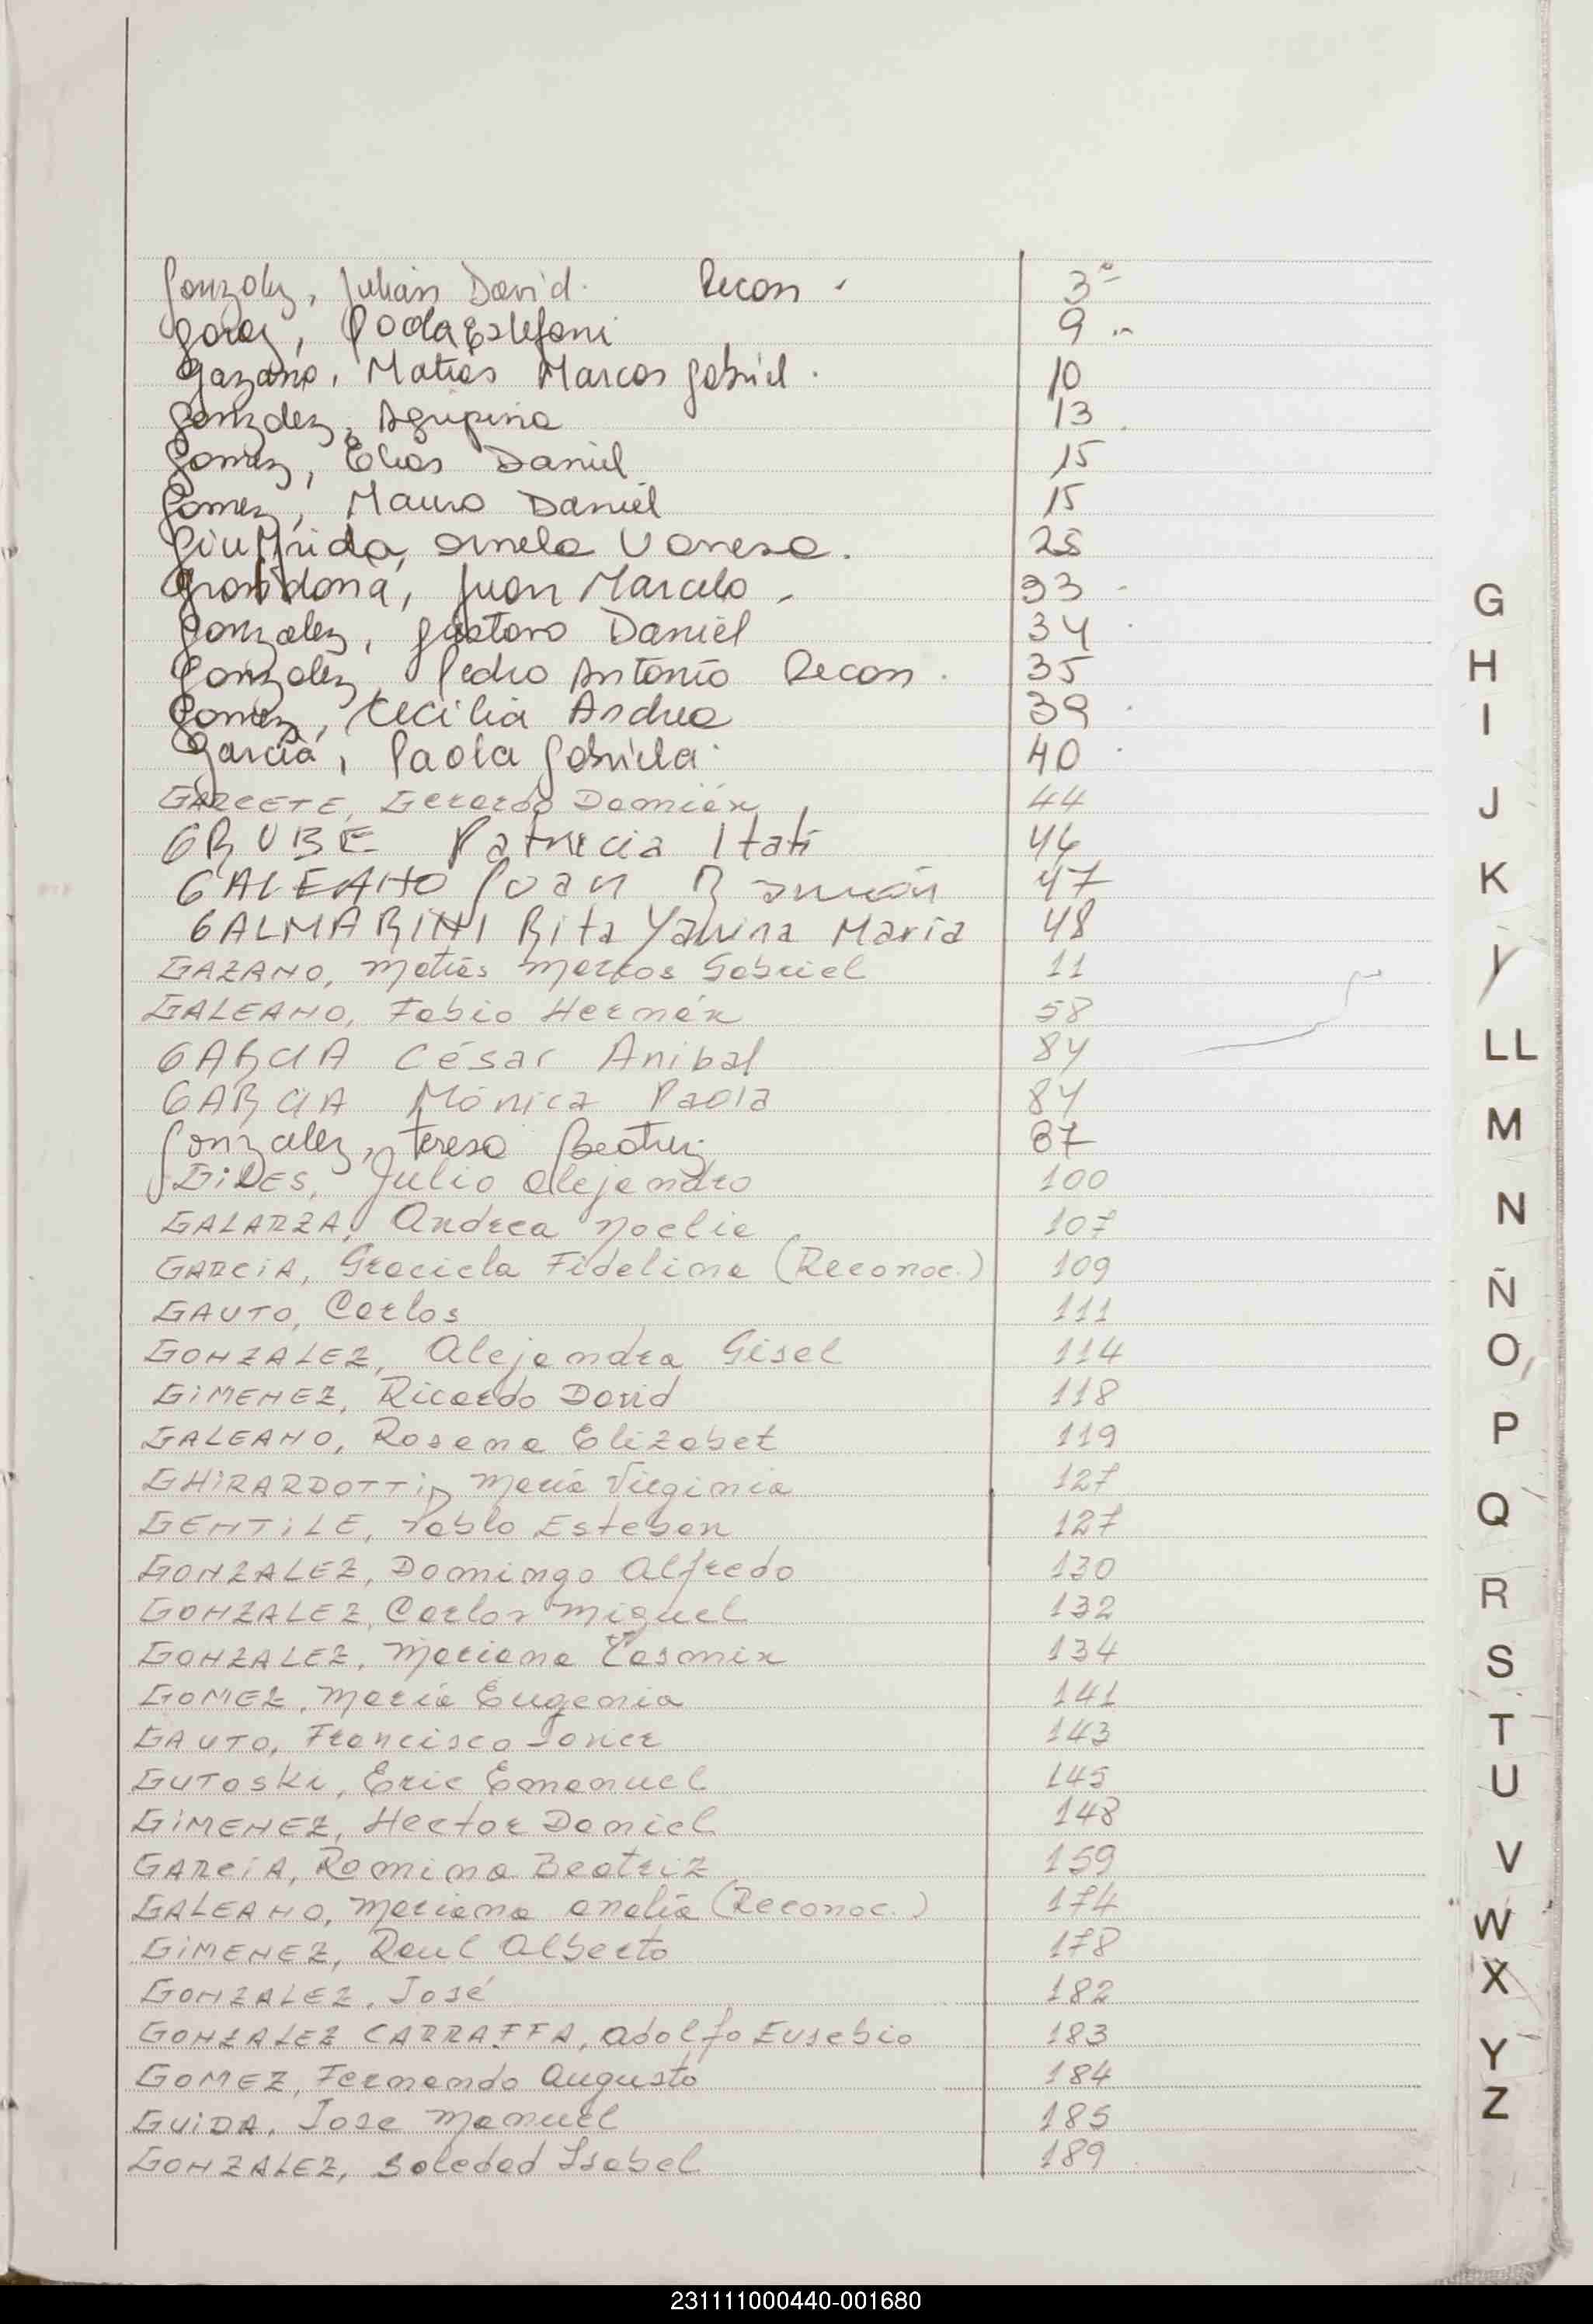 Gonzalez, Julián David. Recon. 3
Paola Estefani 9
Gazano, Matías Marcos Gabriel. 10
Gonzalez, Agripina 13
Gomez, Elias Daniel 15
Gomez, Mauro Daniel 15
Giuffrida, Ornela Vanesa. 25
Juan Marcelo 33
Gonzalez, Gustavo Daniel 34
Gonzalez, Pedro Antonio Recon. 35
Gomez, Cecilia Andrea 39
García, Paola Gabriela. 40
GARCETE, Gerardo Damián 44
GRUBE Patricia Itatí 46
GALEANO Juan Ramón 47
GALMARINI Rita Yanina María 48
GAZANO, Matías Marcos Gabriel 11
GALEANO, Fabio Hernán 58
GARCIA César Anibal 84
GARCIA Mónica Paola 84
Gonzalez, Teresa Beatriz 87
Julio Alejandro 100
GALARZA, Andrea Noelia 107
GARCIA, Graciela Fidelina (Reconoc.) 109
GAUTO, Carlos 111
GONZALEZ, Alejandra Gisel 114
GIMENEZ, Ricardo David 118
GALEANO, Rosana Elizabet 119
GHIRARDOTTI, María Virginia 127
GENTILE, Pablo Esteban 127
GONZALEZ, Domingo Alfredo 130
GONZALEZ, Carlos Miguel 132
GONZALEZ, Mariana Yasmin 134
GOMEZ, María Eugenia 141
GAUTO, Francisco Javier 143
GUTOSKI, Eric Emanuel 145
GIMENEZ, Hector Daniel 148
GARCIA, Romina Beatriz 159
GALEANO, Mariana Analía (Reconoc.) 174
GIMENEZ, Raul Alberto 178
GONZALEZ, José 182
GONZALEZ CARRAFFA, Adolfo Eusebio 183
GOMEZ, Fernando Augusto 184
GUIDA, Jose Manuel 185
GONZALEZ, Soledad Isabel 189
G
H
I
J
K
LL
M
N
Ñ
O
P
Q
R
S
T
U
V
W
X
Y
Z
231111000440-001680